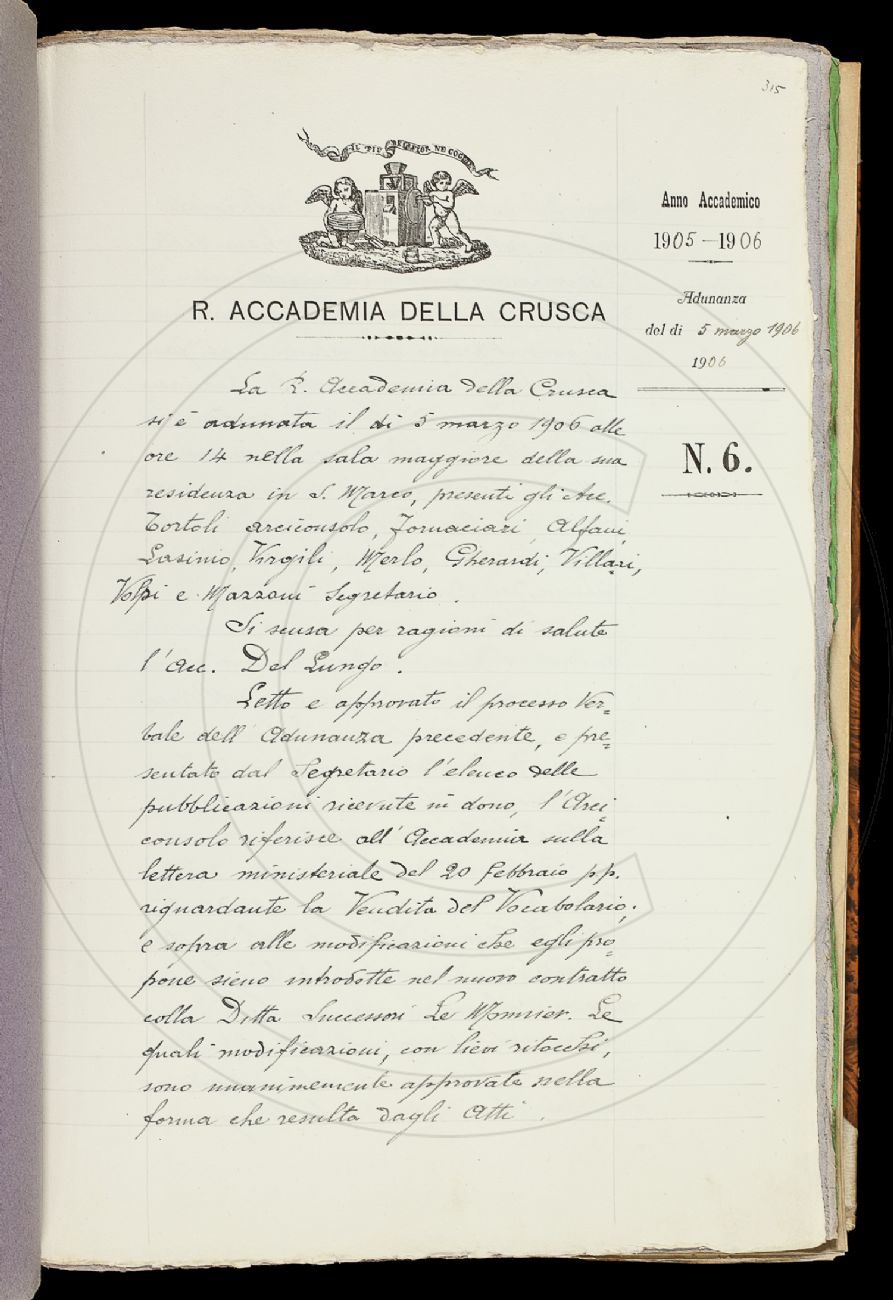 315
IL PIÙ BEL FIOR NE COGLIE
Anno Accademico
1905-1906
Adunanza
del dì 5 marzo 1906
1906
N. 6.
R. ACCADEMIA DELLA CRUSCA
La R. Accademia della Crusca
si è adunata il dì 5 marzo 1906 alle
ore 14 nella sala maggiore della sua
residenza in S. Marco, presenti gli Acc.
Tortoli arciconsolo, Fornaciari, Alfani,
Lasinio, Virgili, Merlo, Gherardi, Villari,
Volpi e Mazzoni Segretario.
Si scusa per ragioni di salute
l'Acc. Del Lungo.
Letto e approvato il processo Ver=
bale dell'Adunanza precedente, e pre=
sentato dal Segretario l'elenco delle
pubblicazioni ricevute in dono, l'Arci=
consolo riferisce all'Accademia sulla
lettera ministeriale del 20 febbraio pp.
riguardante la Vendita del Vocabolario;
e sopra alle modificazioni che egli pro=
pone sieno introdotte nel nuovo contratto
colla Ditta Successori Le Monnier. Le
quali modificazioni, con lievi ritocchi,
sono unanimemente approvate nella
forma che resulta dagli Atti.